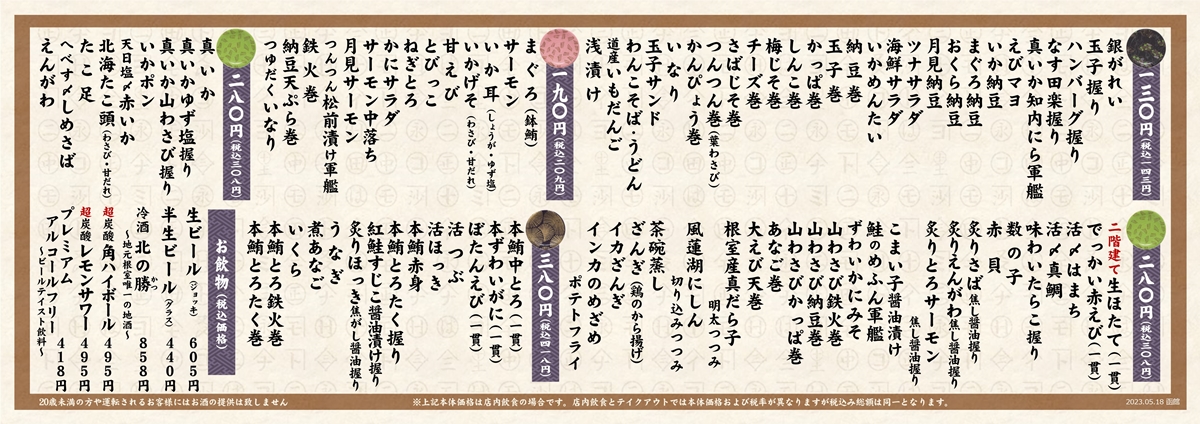 一三〇円(税込一四三円)
銀がれい
玉子握り
ハンバーグ握り
なす田楽握り
真いか知内にら軍艦
えびマヨ
いか納豆
まぐろ納豆
おくら納豆
月見納豆
ツナサラダ
海鮮サラダ
いかめんたい
納豆巻
玉子巻
かっぱ巻
しんこ巻
梅じそ巻
チーズ巻
さばじそ巻
つんつん巻(葉わさび)
かんぴょう巻
いなり
玉子サンド
わんこそば・うどん
道産いもだんご
浅漬け
一九〇円(税込二〇九円)
まぐろ(鉢鮪)
サーモン
いか耳(しょうが・ゆず塩)
いかげそ(わさび・甘だれ)
甘えび
とびっこ
ねぎとろ
かにサラダ
サーモン中落ち
月見サーモン
つんつん松前漬け軍艦
鉄火巻
納豆天ぷら巻
つゆだくいなり
二八〇円(税込三〇八円)
真いか
真いかゆず塩握り
真いか山わさび握り
いかポン
天日塩〆赤いか
北海たこ頭(わさび・甘だれ)
たこ足
へべす〆しめさば
えんがわ
二八〇円(税込三〇八円)
二階建て生ほたて(一貫)
でっかい赤えび(一貫)
活〆はまち
活〆真鯛
味わいたらこ握り
数の子
赤貝
炙りさば焦し醤油握り
炙りえんがわ焦し醤油握り
炙りとろサーモン
焦し醤油握り
こまい子醤油漬け
鮭のめふん軍艦
ずわいかにみそ
山わさび鉄火巻
山わさび納豆巻
山わさびかっぱ巻
あなご巻
大えび天巻
根室産真だら子
明太つつみ
風蓮湖にしん
切り込みつつみ
茶碗蒸し
ざんぎ(鶏のから揚げ)
イカざんぎ
インカのめざめ
ポテトフライ
三八〇円(税込四一八円)
本鮪中とろ(一貫)
本ずわいがに(一貫)
ぼたんえび(一貫)
活つぶ
活ほっき
本鮪赤身
本鮪とろたく握り
紅鮭すじこ醤油漬け握り
炙りほっき焦がし醤油握り
うなぎ
煮あなご
いくら
本鮪とろ鉄火巻
本鮪とろたく巻
お飲物(税込価格)
生ビール(ジョッキ) 605円
半生ビール(グラス) 440円
冷酒 北の勝 858円
かつ
〜地元根室唯一の地酒〜
超炭酸角ハイボール 495円
超炭酸レモンサワー 495円
プレミアム
アルコールフリー 418円
〜ビールテイスト飲料〜
20歳未満の方や運転されるお客様にはお酒の提供は致しません
※上記本体価格は店内飲食の場合です。店内飲食とテイクアウトでは本体価格および税率が異なりますが税込み総額は同一となります。
2023.05.18 函館